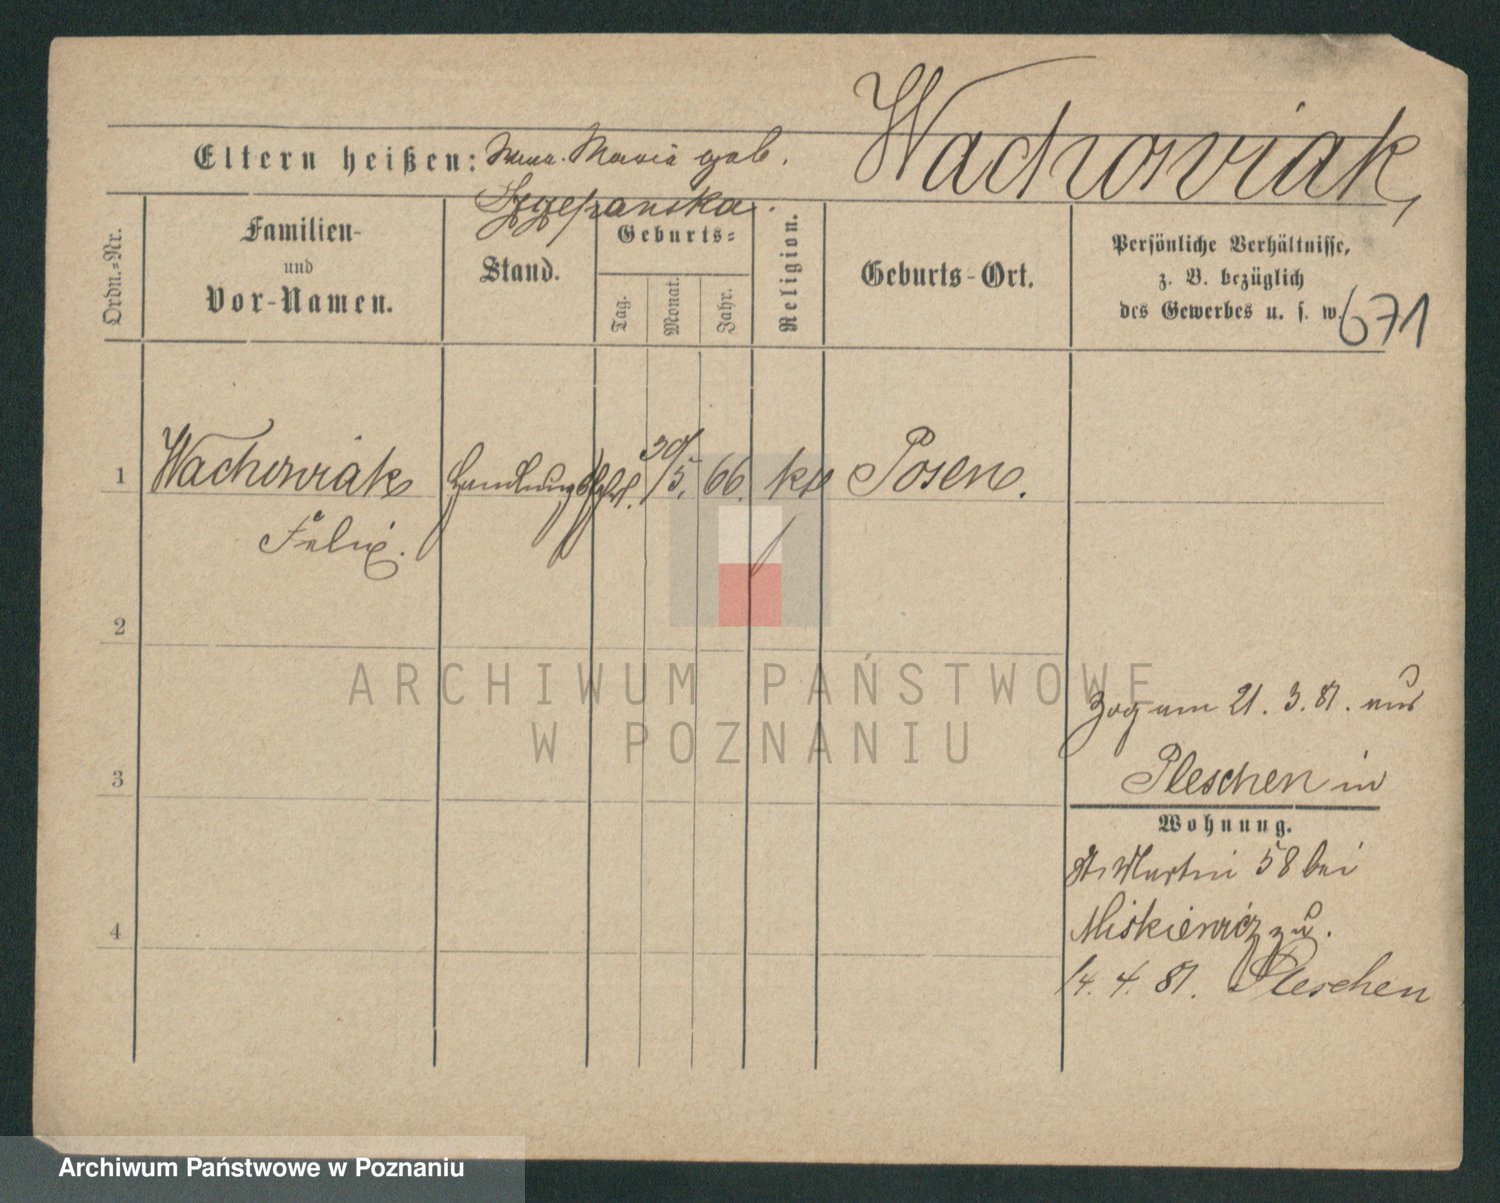 Wachowiak,
Eltern heißen: Maria geb.
Szczepanska.
Ordn.-Nr.
Familien-
und
Vor-Namen.
Stand.
Geburts-
Tag.
Monat.
Jahr.
Religion.
Geburts-Ort.
Persönliche Verhältnisse,
z. B. bezüglich
des Gewerbes u. s. w.
671
1 Wachowiak 30/5. 66. kth Posen.
Felix.
2
3
4
Zog am 21. 3. 81. aus
Pleschen in
Wohnung.
St. Martin 58 bei
Miskiewicz zu.
14. 4. 81. Pleschen
ARCHIWUM PAŃSTWOWE
W POZNANIU
Archiwum Państwowe w Poznaniu